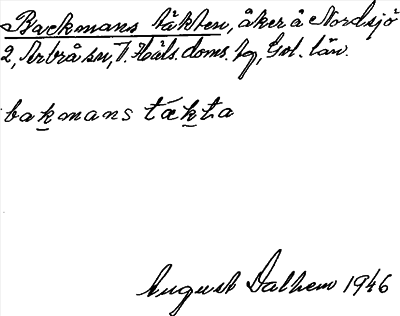 Backmans täkten, åker å Nordsjö
2, Arbrå sn, V. Häls. doms. hg, Gvl. län.
bakmans täkta
August Dalhem 1946